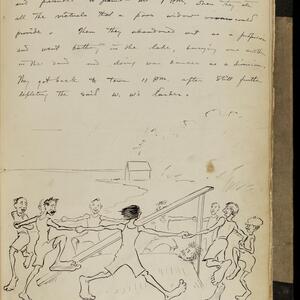 and proceeded to 1 PM, when they ate
all the victuals that a poor widow could
provide. Then they abandoned out as a puffin
and went bathing in the lake, burying one another
in the sand and doing war dances as a diversion.
They got back to town 11 PM. after still further
depleting the said w. w's larder.